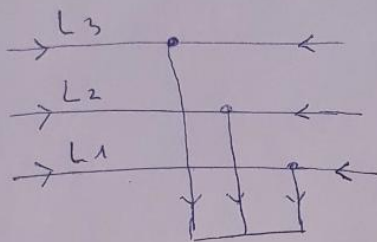 L3
L2
L1